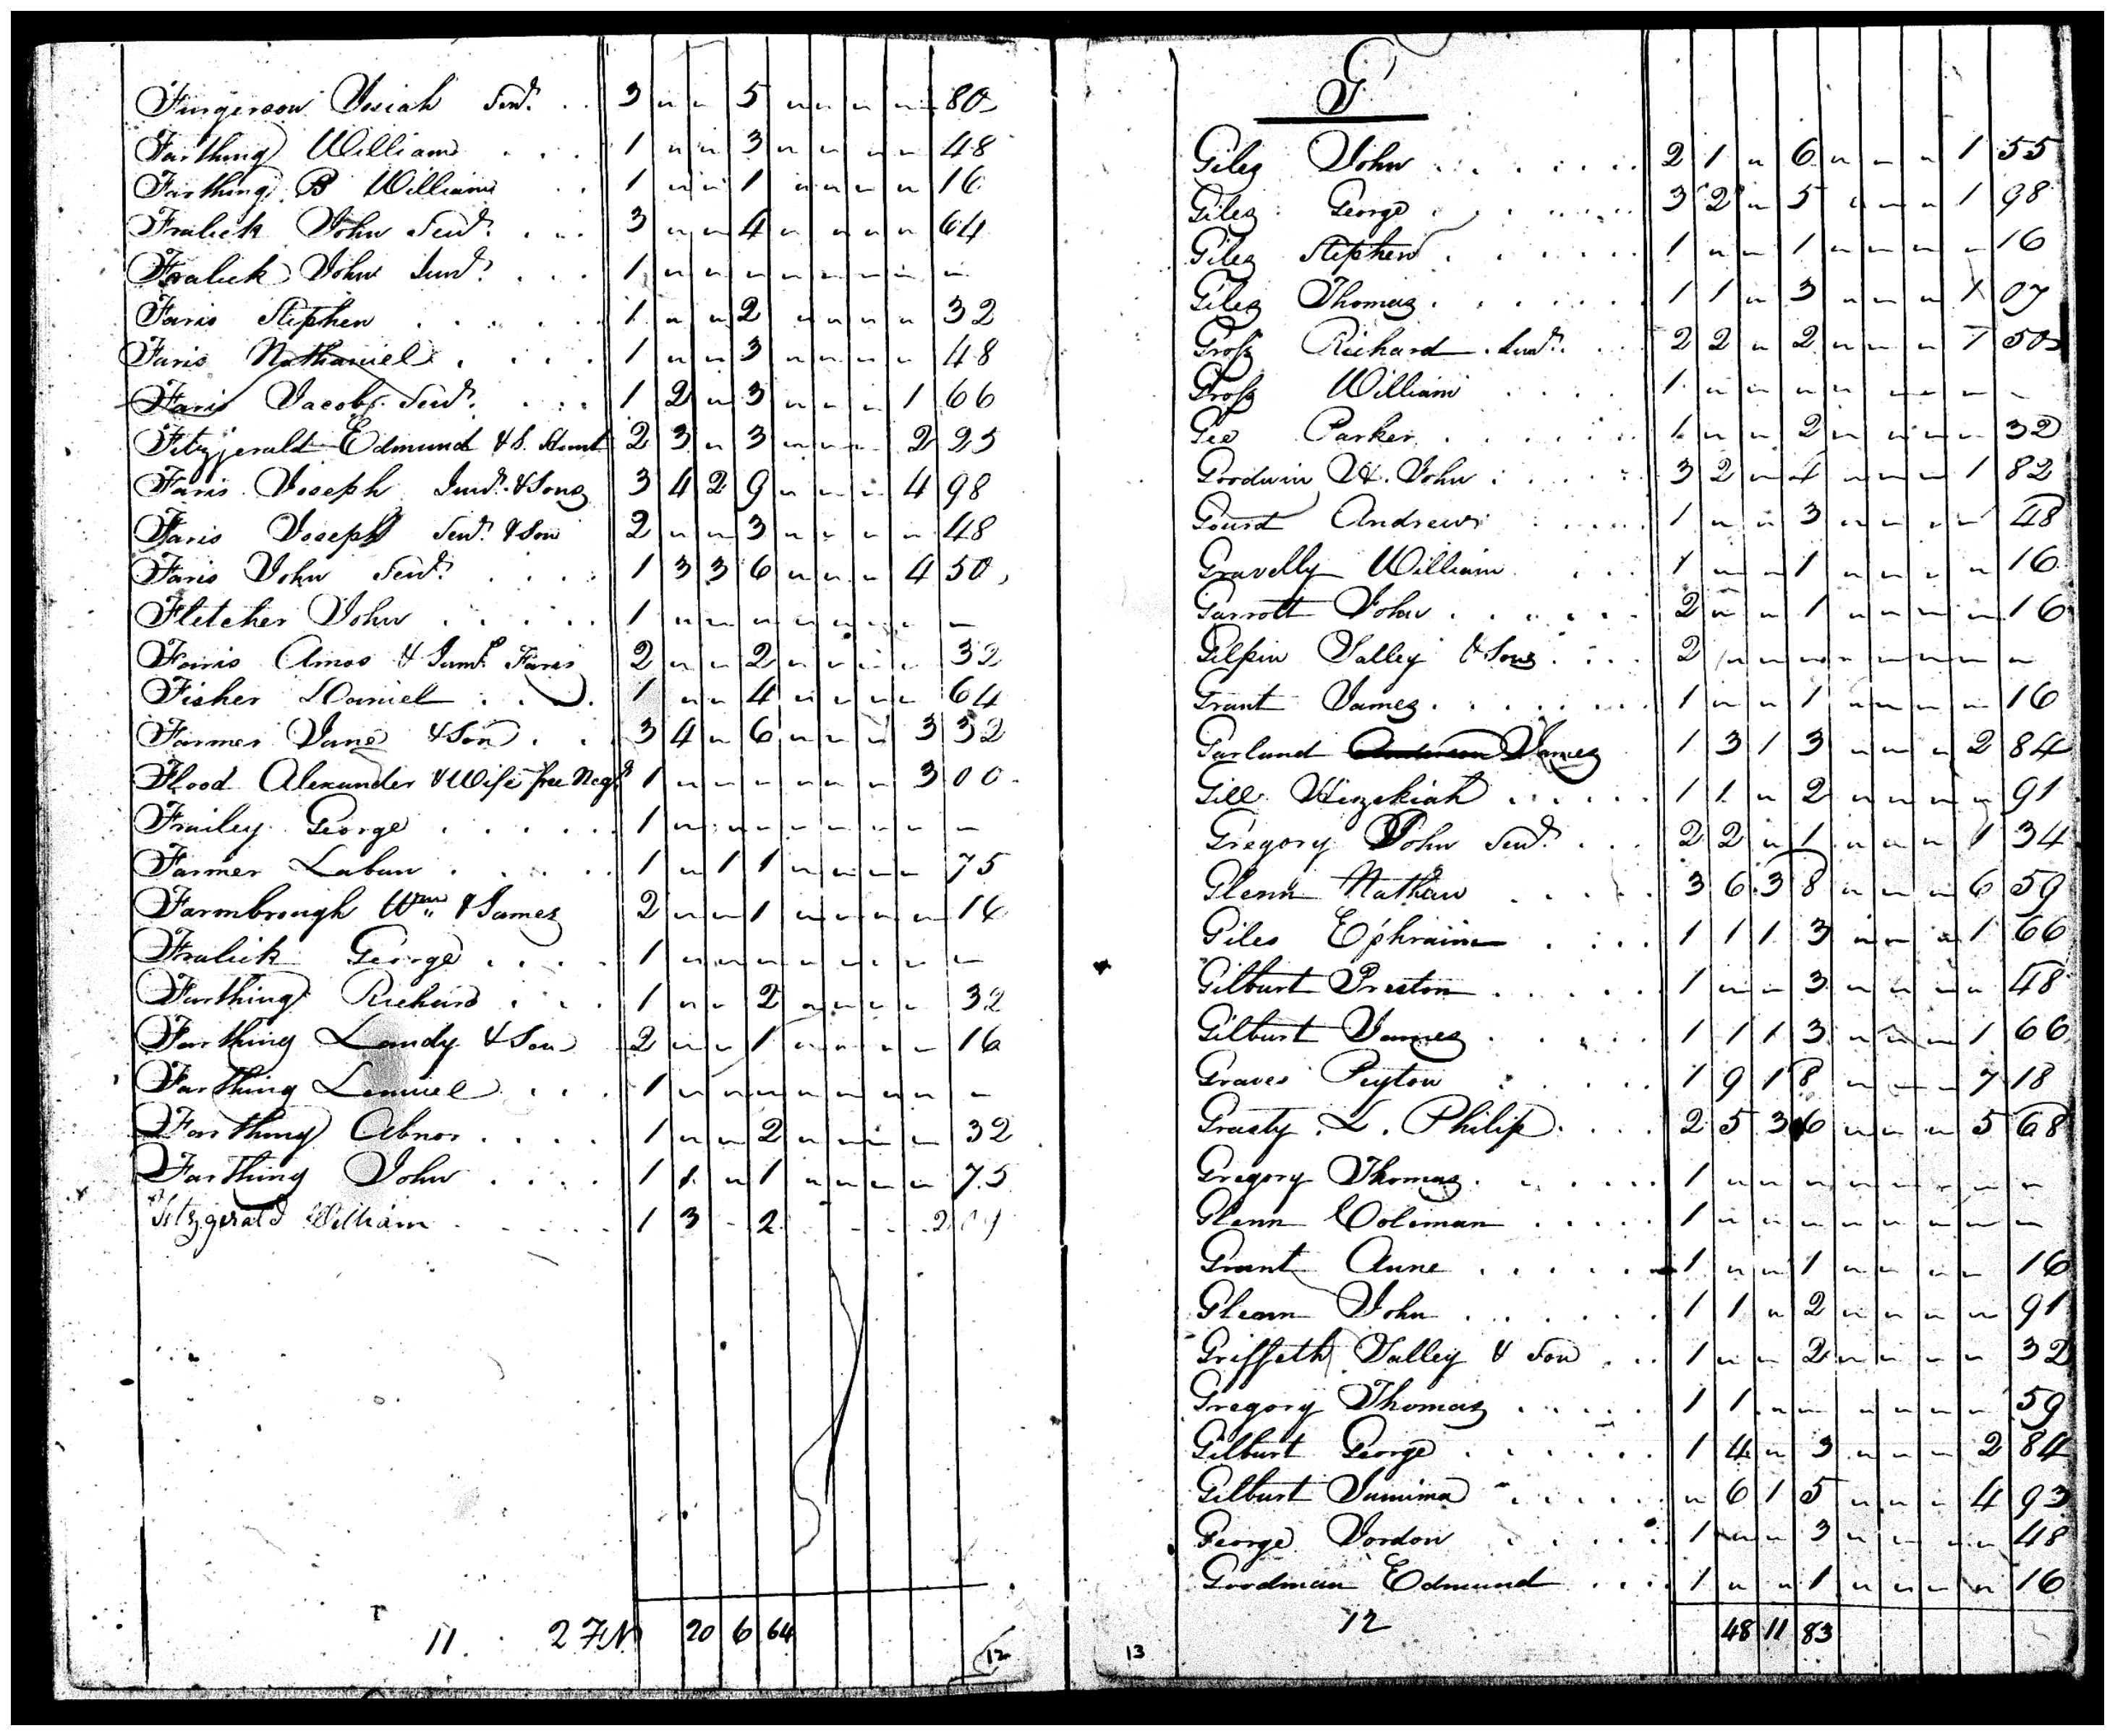 Fingerson Isaiah Senr. . . 3 " " 5 " " " " 80
Farthing William . . . 1 " " 3 " " " " 48
Farthing B William . . 1 " " 1 " " " " 16
Fralick John Senr. . . . 3 " " 4 " " " " 64
Fralick John Junr. . . . 1 " " " " " " " "
Faris Stephen . . . . . 1 " " 2 " " " " 32
Faris Nathaniel . . . . 1 " " 3 " " " " 48
Faris Jacob Senr. . . . 1 2 " 3 " " " 1 66
Fitzgerald Edmund & S. Hunt 2 3 " 3 " " " 2 25
Faris Joseph Junr. & Sons 3 4 2 9 " " " 4 98
Faris Joseph Senr. & Son 2 " " 3 " " " " 48
Faris John Senr. . . . . 1 3 3 6 " " " 4 50
Fletcher John . . . . . 1 " " " " " " " "
Farris Amos & Saml. Faris 2 " " 2 " " " " 32
Fisher Daniel . . . . 1 " " 4 " " " " 64
Farmer Jane & Son . . . 3 4 " 6 " " " 3 32
Flood Alexander & Wife free Negs. 1 " " " " " " 3 00
Frailey George . . . . . 1 " " " " " " " "
Farmer Laban . . . . . 1 " 1 1 " " " " 75
Farmbrough Wm. & James 2 " " 1 " " " " 16
Fralick George . . . . 1 " " " " " " " "
Farthing Richard . . . 1 " " 2 " " " " 32
Farthing Landy & Son 2 " " 1 " " " " 16
Farthing Lemuel . . . 1 " " " " " " " "
Farthing Abner . . . . 1 " " 2 " " " " 32
Farthing John . . . . 1 1 " 1 " " " " 75
Fitzgerald William . . . . . 1 3 - 2 - - - 2
11 27 20 6 64
12
G
Giles John . . . . . . 2 1 " 6 " " " 1 55
Giles George . . . . . . 3 2 " 5 " " " 1 98
Giles Stephen . . . . . . 1 " " 1 " " " " 16
Giles Thomas . . . . . . 1 1 " 3 " " " 1 07
Gross Richard Junr. . . . 2 2 " 2 " " " 1 50
Gross William . . . . 1 " " " " " " " "
Gee Parker . . . . . . 1 " " 2 " " " " 32
Goodwin W. John . . . . . 3 2 " 4 " " " 1 82
Gourd Andrew . . . . . 1 " " 3 " " " " 48
Gravelly William . . . 1 " " 1 " " " " 16
Garrott John . . . . . . 2 " " 1 " " " " 16
Gilpin Salley & Sons . . . . 2 " " " " " " " "
Grant James . . . . . . . 1 " " 1 " " " " 16
Garland Anderson James 1 3 1 3 " " " 2 84
Gill Hezekiah . . . . . 1 1 " 2 " " " " 91
Gregory John Senr. . . . 2 2 " 1 " " " 1 34
Glenn Nathan . . . . 3 6 3 8 " " " 6 59
Giles Ephraim . . . . 1 1 1 3 " " " 1 66
Gilburt Preston . . . . . . 1 " " 3 " " " " 48
Gilburt James . . . . . 1 1 1 3 " " " 1 66
Graves Peyton . . . . . 1 9 1 8 " " " 7 18
Grasty L. Philip . . . . 2 5 3 6 " " " 5 68
Gregory Thomas . . . . . . 1 " " " " " " " "
Glenn Coleman . . . . . 1 " " " " " " " "
Grant Anne . . . . . . 1 " " 1 " " " " 16
Glenn John . . . . . . 1 1 " 2 " " " " 91
Griffeth Salley & Son . . . 1 " " 2 " " " " 32
Gregory Thomas . . . . . 1 1 " " " " " " 59
Gilburt George . . . . . . 1 4 " 3 " " " 2 84
Gilburt Jemima . . . . . " 6 1 5 " " " 4 93
George Jordon . . . . . 1 " " 3 " " " " 48
Goodman Edmund . . . . 1 " " 1 " " " " 16
12 48 11 83
13